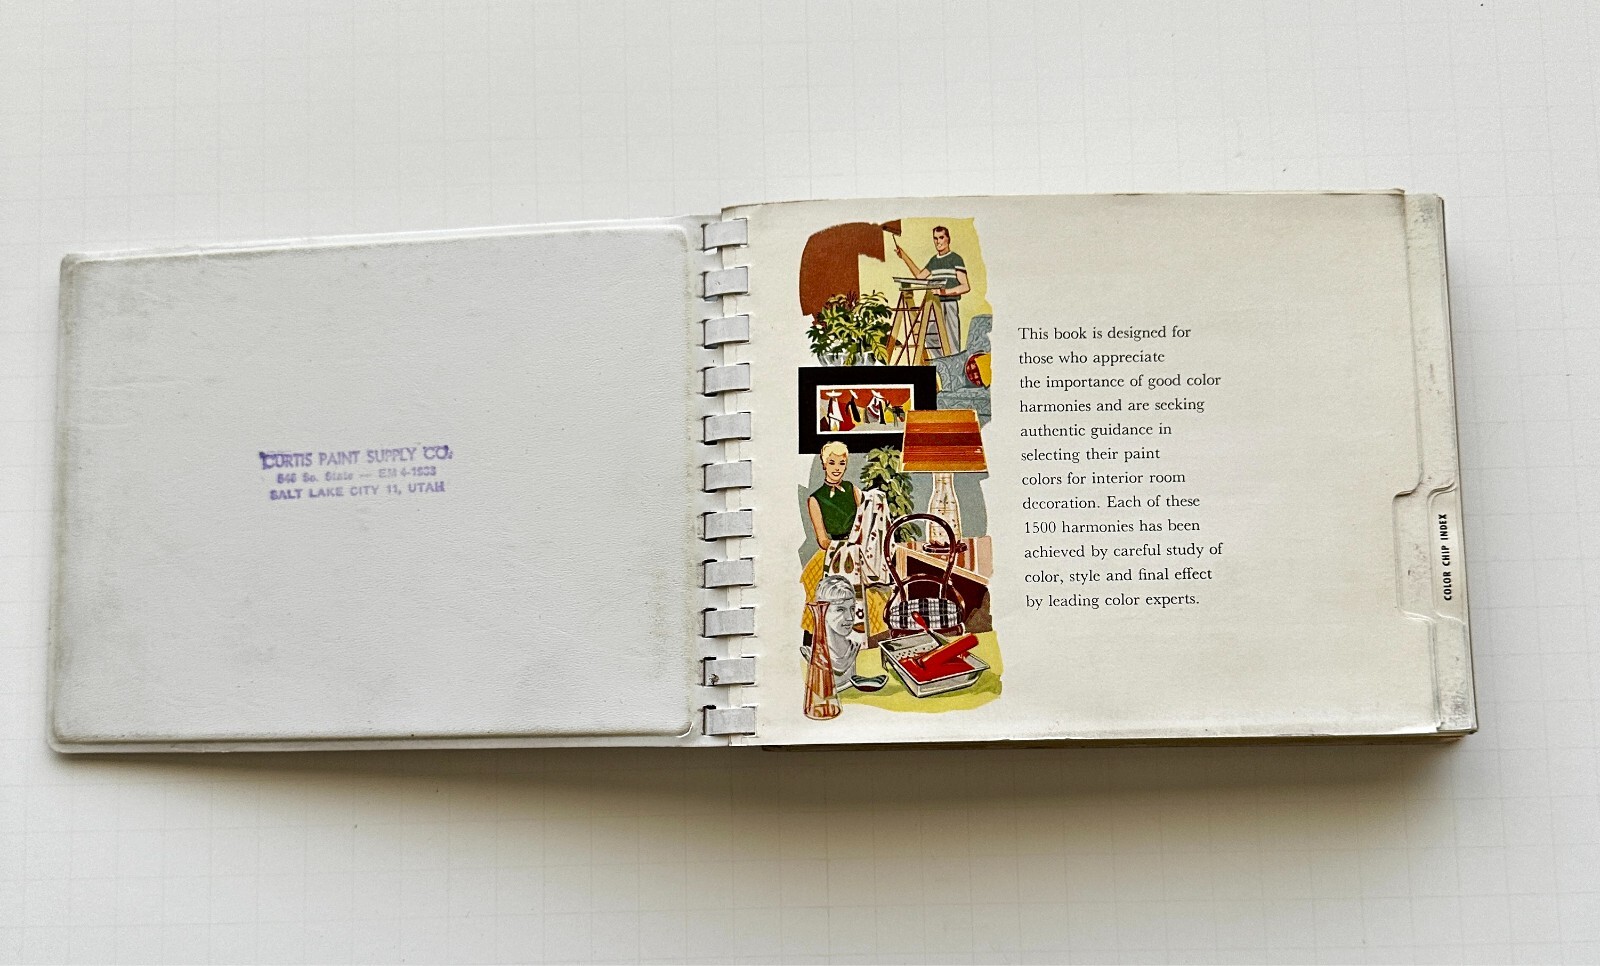 CURTIS PAINT SUPPLY CO.
So. State — EM 4-1933
SALT LAKE CITY 11, UTAH
This book is designed for
those who appreciate
the importance of good color
harmonies and are seeking
authentic guidance in
selecting their paint
colors for interior room
decoration. Each of these
1500 harmonies has been
achieved by careful study of
color, style and final effect
by leading color experts.
COLOR CHIP INDEX